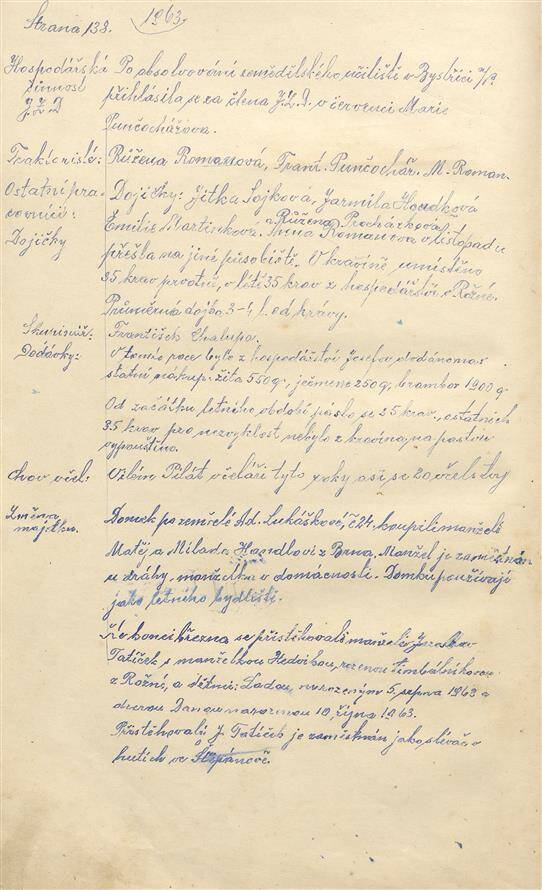 Strana 138. 1963.
Hospodářská Po absolvování zemědělského učiliště v Bystřici n/P.
činnost přihlásila se za člena J.Z.D. v červenci Marie
J.Z.D Punčochářova.
Traktoristé: Růžena Romanová, Frant. Punčochář. M. Roman.
Ostatní pra- Dojičky: Jitka Sojková, Jarmila Houdková
covníci: Emilie Martinkova. a Růžena Procházková
Dojičky Anna Romanova v listopadu
přešla na jiné působiště. V kravíně umístěno
35 krav prvotně, v létě 35 krav z hospodářství Rožné.
Průměrná dojba 3-4 l. od krávy.
František Chalupa.
Dodávky: V tomto roce bylo z hospodářství Josefov dodáno na
státní nákup: žita 550 q, ječmene 250 q, brambor 1900 q
Od začátku letního období páslo se 25 krav, ostatních
35 krav pro nezvyklost nebylo z kravína na pastvu
vypouštěno.
Chov včel: Vilém Pilát včelaří tyto roky asi se 20 včelstvy
Změna Domek po zemřelé Ad. Lukáškové, č 24. koupili manželé
majetku. Matěj a Milada Haendlovi z Brna. Manžel je zaměstnán
u dráhy, manželka v domácnosti. Domku používají
jako letního bydliště.
Ke konci března se přistěhovali manželé Jaroslav
Tatíček s manželkou Hedvikou, rozenou
z Rožné, a dětmi: Ladou, narozeným 5. srpna 1963 a
dcerou Danou narozenou 10. října 1963.
Přistěhovalý J. Tatíček je zaměstnán jako slévač v
hutích ve Štěpánově.